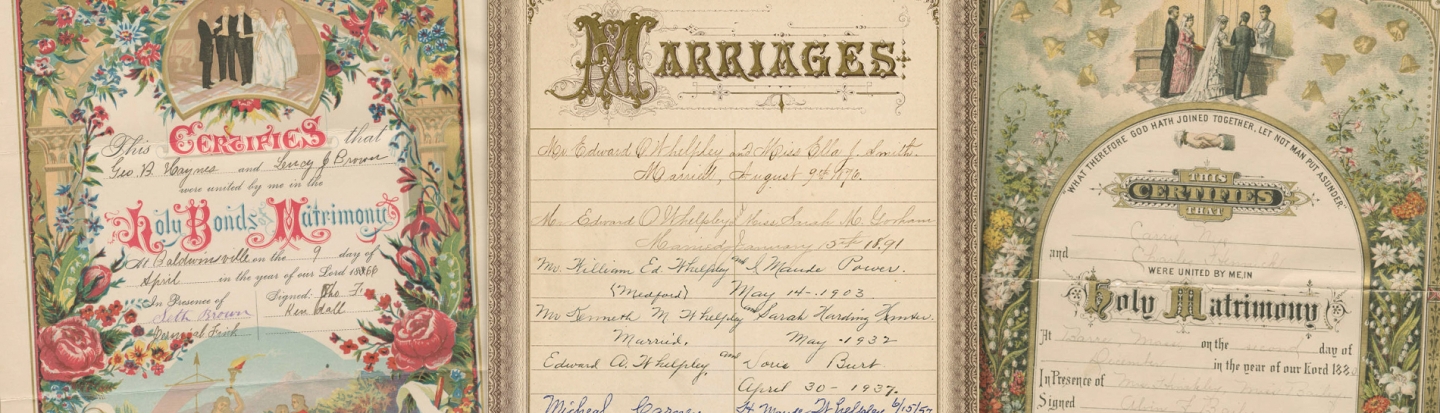 This CERTIFIES that
Geo. B. Haynes and Lucy J Brown
were united by me in the
Holy Bonds of Matrimony
At Baldwinsville on the 9 day of
April in the year of our Lord
In Presence of
Seth Brown
Signed.
MARRIAGES
Mr Edward O Whelpley and Miss Ella J. Smith.
Married, August 9th 1876.
Mr. Edward O Whelpley & Miss Sarah M. Gorham
Married January 15th 1891
Mr. William Ed Whelpley and I Maude Power.
(Medford) May 14-1903
Mr Kenneth M Whelpley and Sarah Harding Hunter.
Married. May -1932
Edward A. Whelpley and Burt
April 30-1937.
Micheal Carney H. Maude Whelpley 6/15/57
WHAT THEREFORE GOD HATH JOINED TOGETHER, LET NOT MAN PUT ASUNDER.
THIS
CERTIFIES
THAT
Carry
and
Charley
WERE UNITED BY ME, IN
Holy Matrimony
At on the second day of
December in the year of our Lord 188
In Presence of
Signed